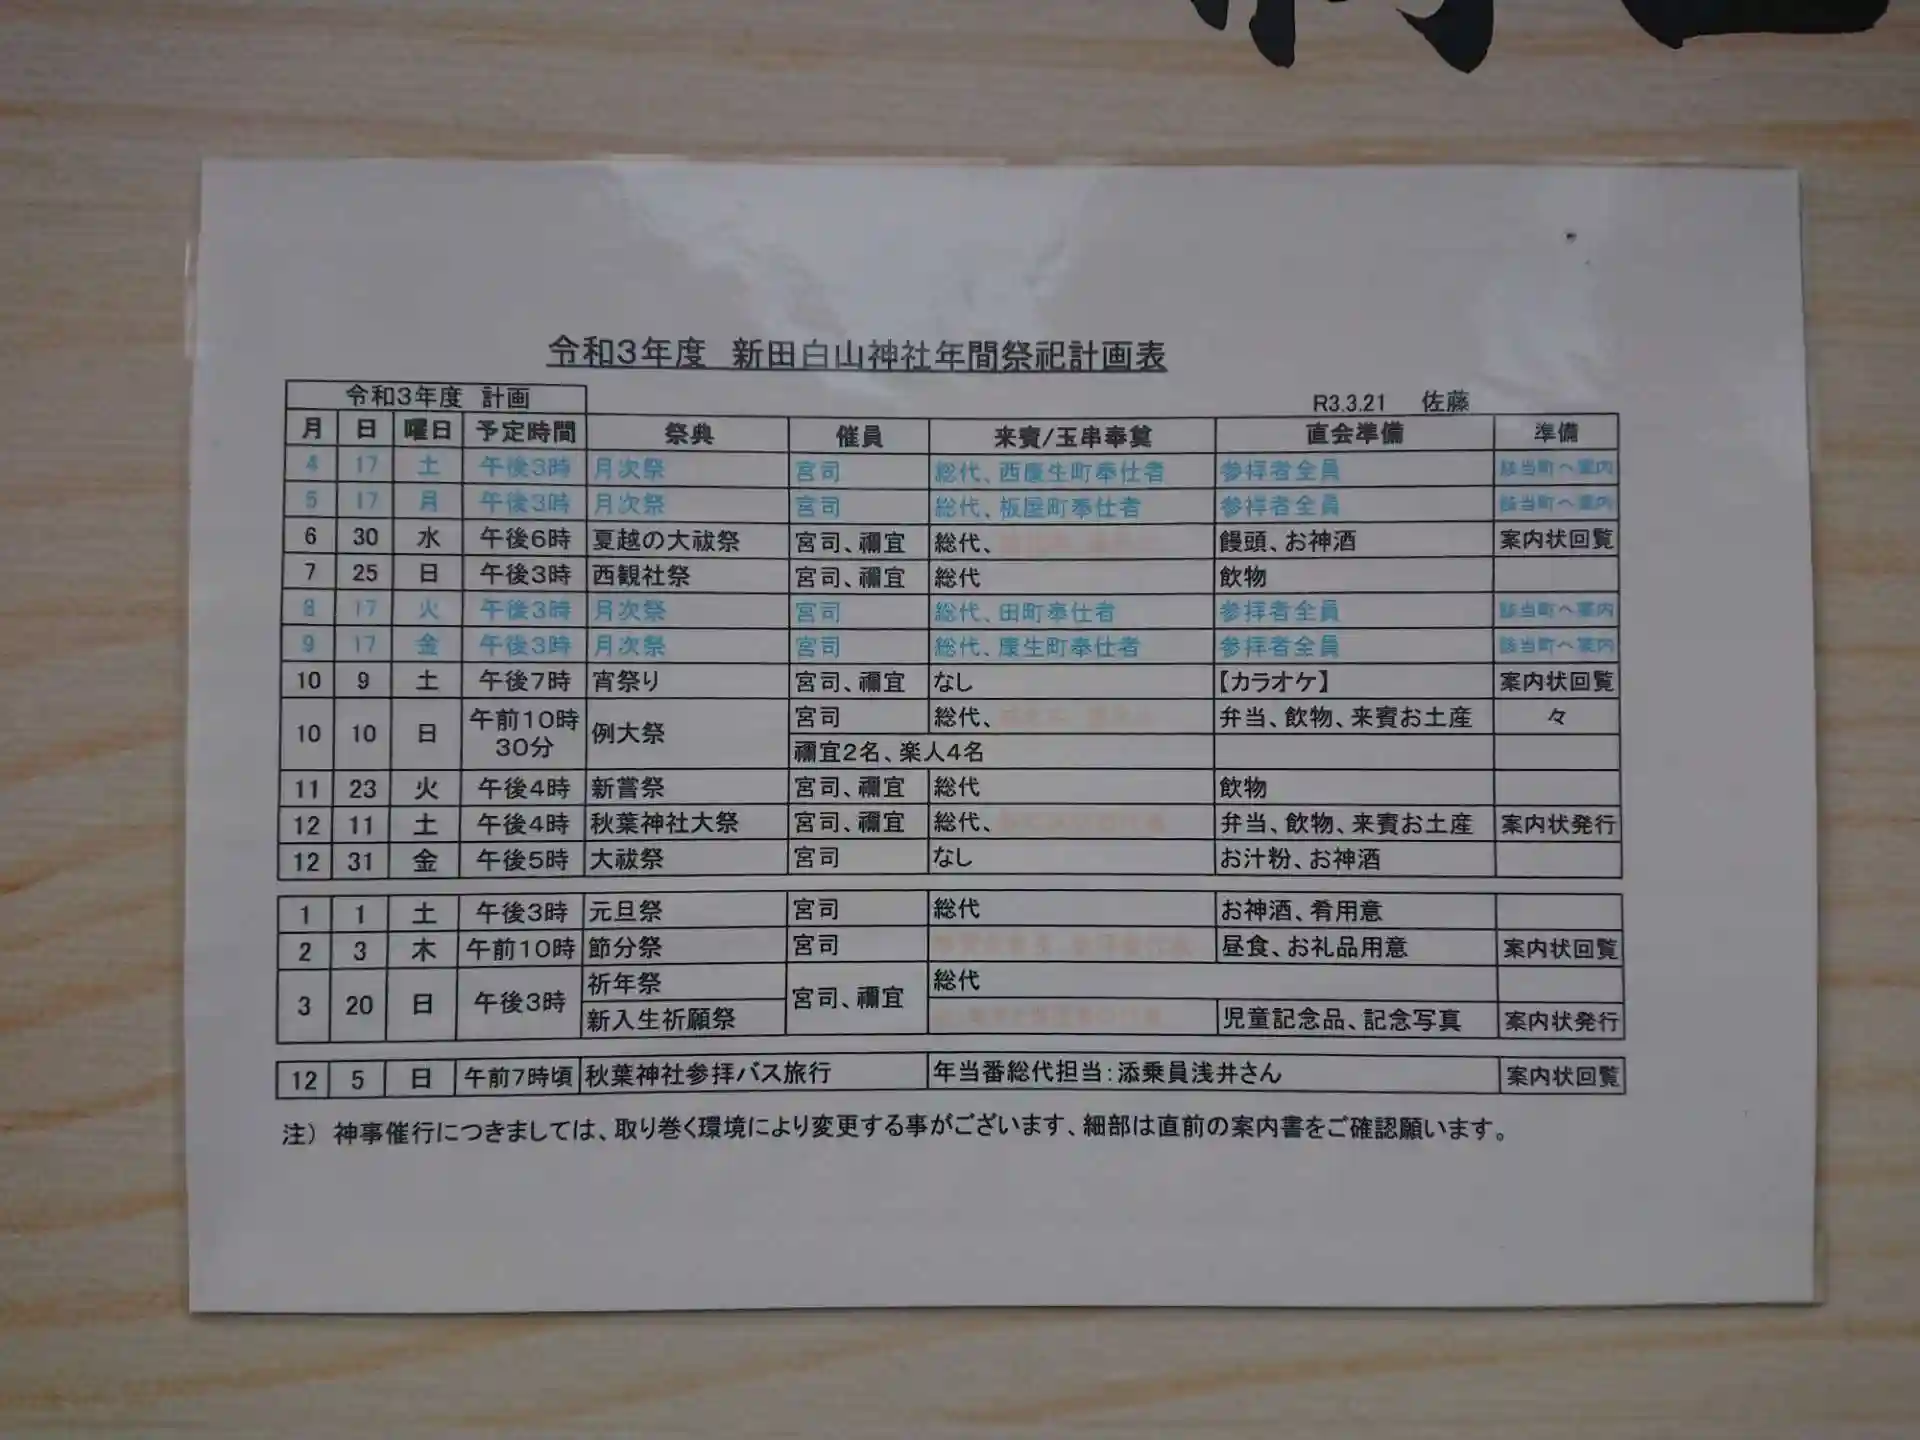 令和3年度 新田白山神社年間祭祀計画表
令和3年度 計画
R3.3.21 佐藤
月 日 曜日 予定時間 祭典 催員 来賓/玉串奉奠 直会準備 準備
4 17 土 午後3時 月次祭 宮司 総代、西康生町奉仕者 参拝者全員 該当町へ案内
5 17 月 午後3時 月次祭 宮司 総代、板屋町奉仕者 参拝者全員 該当町へ案内
6 30 水 午後6時 夏越の大祓祭 宮司、禰宜 総代、 饅頭、お神酒 案内状回覧
7 25 日 午後3時 西観社祭 宮司、禰宜 総代 飲物
8 17 火 午後3時 月次祭 宮司 総代、田町奉仕者 参拝者全員 該当町へ案内
9 17 金 午後3時 月次祭 宮司 総代、康生町奉仕者 参拝者全員 該当町へ案内
10 9 土 午後7時 宵祭り 宮司、禰宜 なし 【カラオケ】 案内状回覧
10 10 日 午前10時30分 例大祭 宮司 総代、 弁当、飲物、来賓お土産 々
禰宜2名、楽人4名
11 23 火 午後4時 新嘗祭 宮司、禰宜 総代 飲物
12 11 土 午後4時 秋葉神社大祭 宮司、禰宜 総代、 弁当、飲物、来賓お土産 案内状発行
12 31 金 午後5時 大祓祭 宮司 なし お汁粉、お神酒
1 1 土 午後3時 元旦祭 宮司 総代 お神酒、肴用意
2 3 木 午前10時 節分祭 宮司 昼食、お礼品用意 案内状回覧
3 20 日 午後3時 祈年祭 宮司、禰宜 総代
新入生祈願祭 児童記念品、記念写真 案内状発行
12 5 日 午前7時頃 秋葉神社参拝バス旅行 年当番総代担当:添乗員浅井さん 案内状回覧
注) 神事催行につきましては、取り巻く環境により変更する事がございます、細部は直前の案内書をご確認願います。